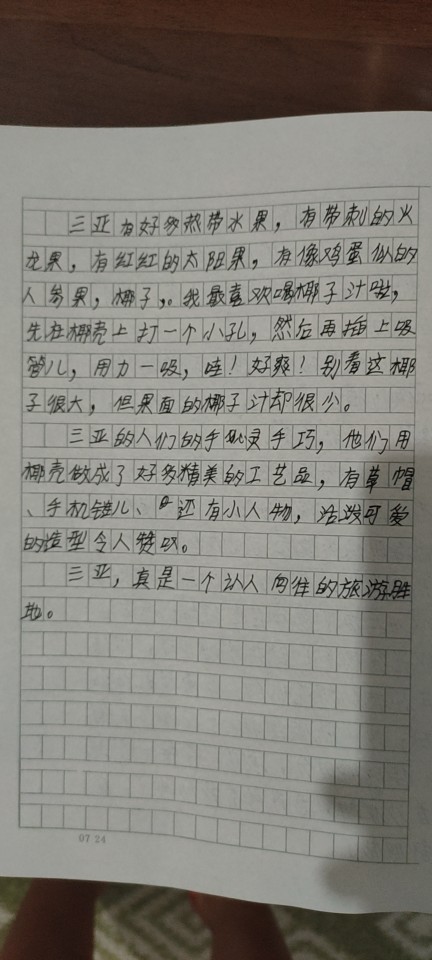 三亚有好多热带水果，有带刺的火
龙果，有红红的太阳果，有像鸡蛋似的
人参果，椰子，。我最喜欢喝椰子汁啦，
先在椰壳上打一个小孔，然后再插上吸
管儿，用力一吸，哇！好爽！别看这椰
子很大，但果面的椰子汁却很少。
三亚的人们的手灵手巧，他们用
椰壳做成了好多精美的工艺品，有草帽
、手机链儿、还有小人物，活泼可爱
的造型令人赞叹。
三亚，真是一个认人向往的旅游胜
地。
07 24